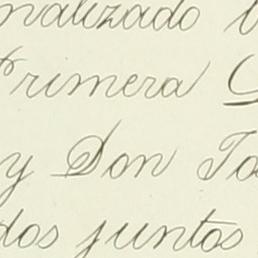 nalizado
Primera
y Don
dos juntos